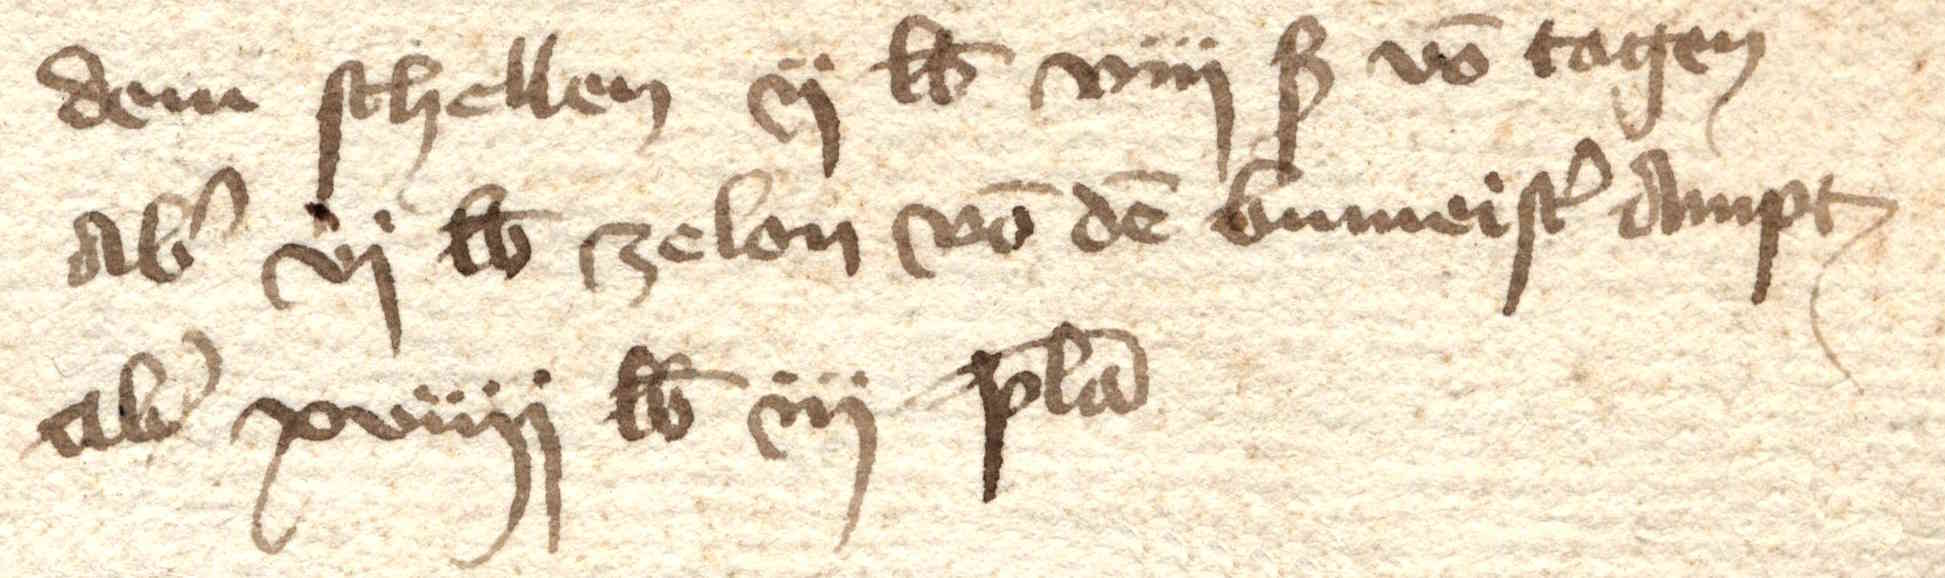 dem schellen ij lb viiij ß vō tagen
Ab̾ vj lb ze lon vō dē bumeist̾ Ampt
ab̾ xviiij lb iij plā